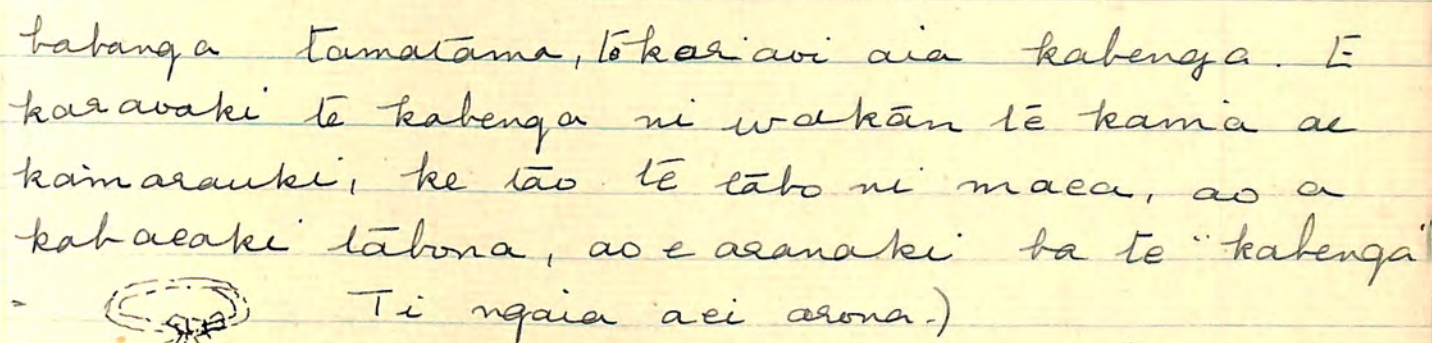 babanga tamatāma, tē kariaoi aia kabenga. E
karaoaki te kabenga ni wakān tē kama ae
kamarauki, ke tāo tē tābo ni maea, ao a
kabaeaki tābona, ao e aranaki ba te "kabenga"
- Ti ngaia aei arona.)